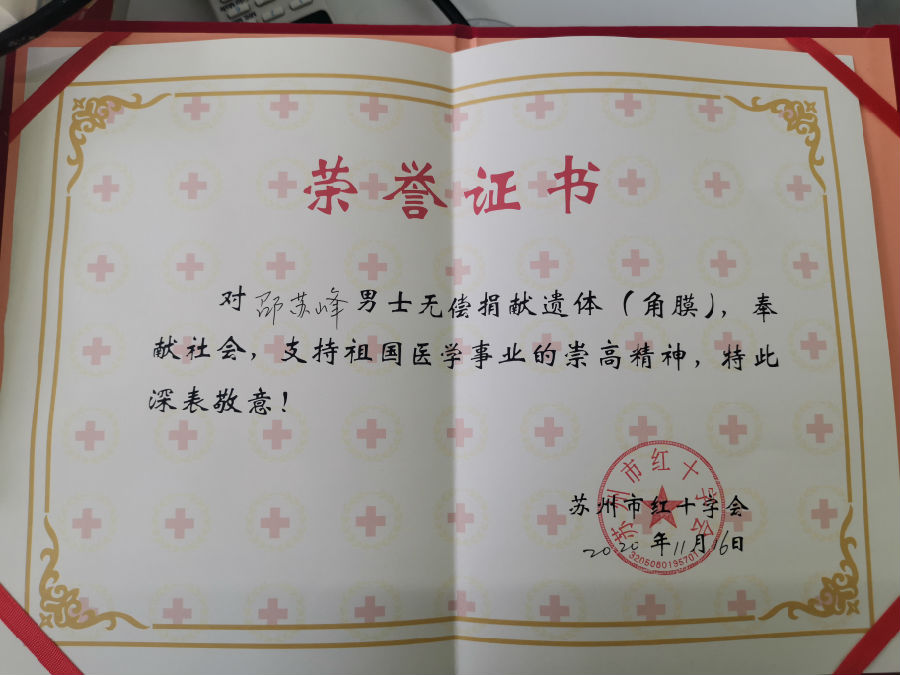 荣誉证书
对邵苏峰男士无偿捐献遗体（角膜），奉
献社会，支持祖国医学事业的崇高精神，特此
深表敬意！
苏州市红十字会
苏州市红十字会
2020年11月16日
3205080195701